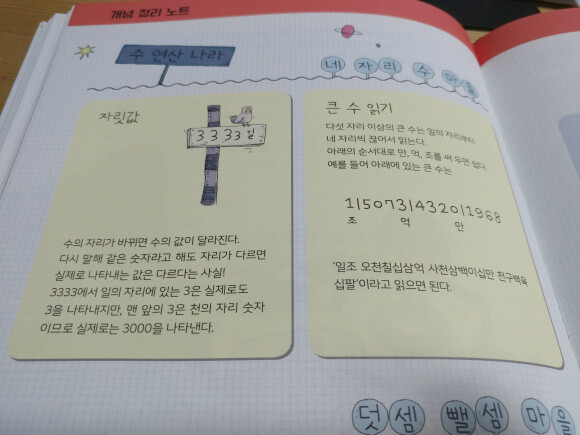 개념 정리 노트
수 연산 나라
네 자리 수 마을
자릿값
3333일
수의 자리가 바뀌면 수의 값이 달라진다.
다시 말해 같은 숫자라고 해도 자리가 다르면
실제로 나타내는 값은 다르다는 사실!
3333에서 일의 자리에 있는 3은 실제로도
3을 나타내지만, 맨 앞의 3은 천의 자리 숫자
이므로 실제로는 3000을 나타낸다.
큰 수 읽기
다섯 자리 이상의 큰 수는 일의 자리부터
네 자리씩 끊어서 읽는다.
아래의 순서대로 만, 억, 조를 써 두면 쉽다.
예를 들어 아래에 있는 큰 수는
1|5073|4320|1968
조 억 만
'일조 오천칠십삼억 사천삼백이십만 천구백육
십팔'이라고 읽으면 된다.
덧셈 뺄셈 마을